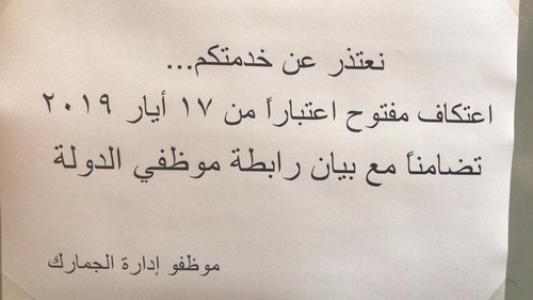 نعتذر عن خدمتكم...
اعتكاف مفتوح اعتباراً من ١٧ أيار ٢٠١٩
تضامناً مع بيان رابطة موظفي الدولة
موظفو إدارة الجمارك